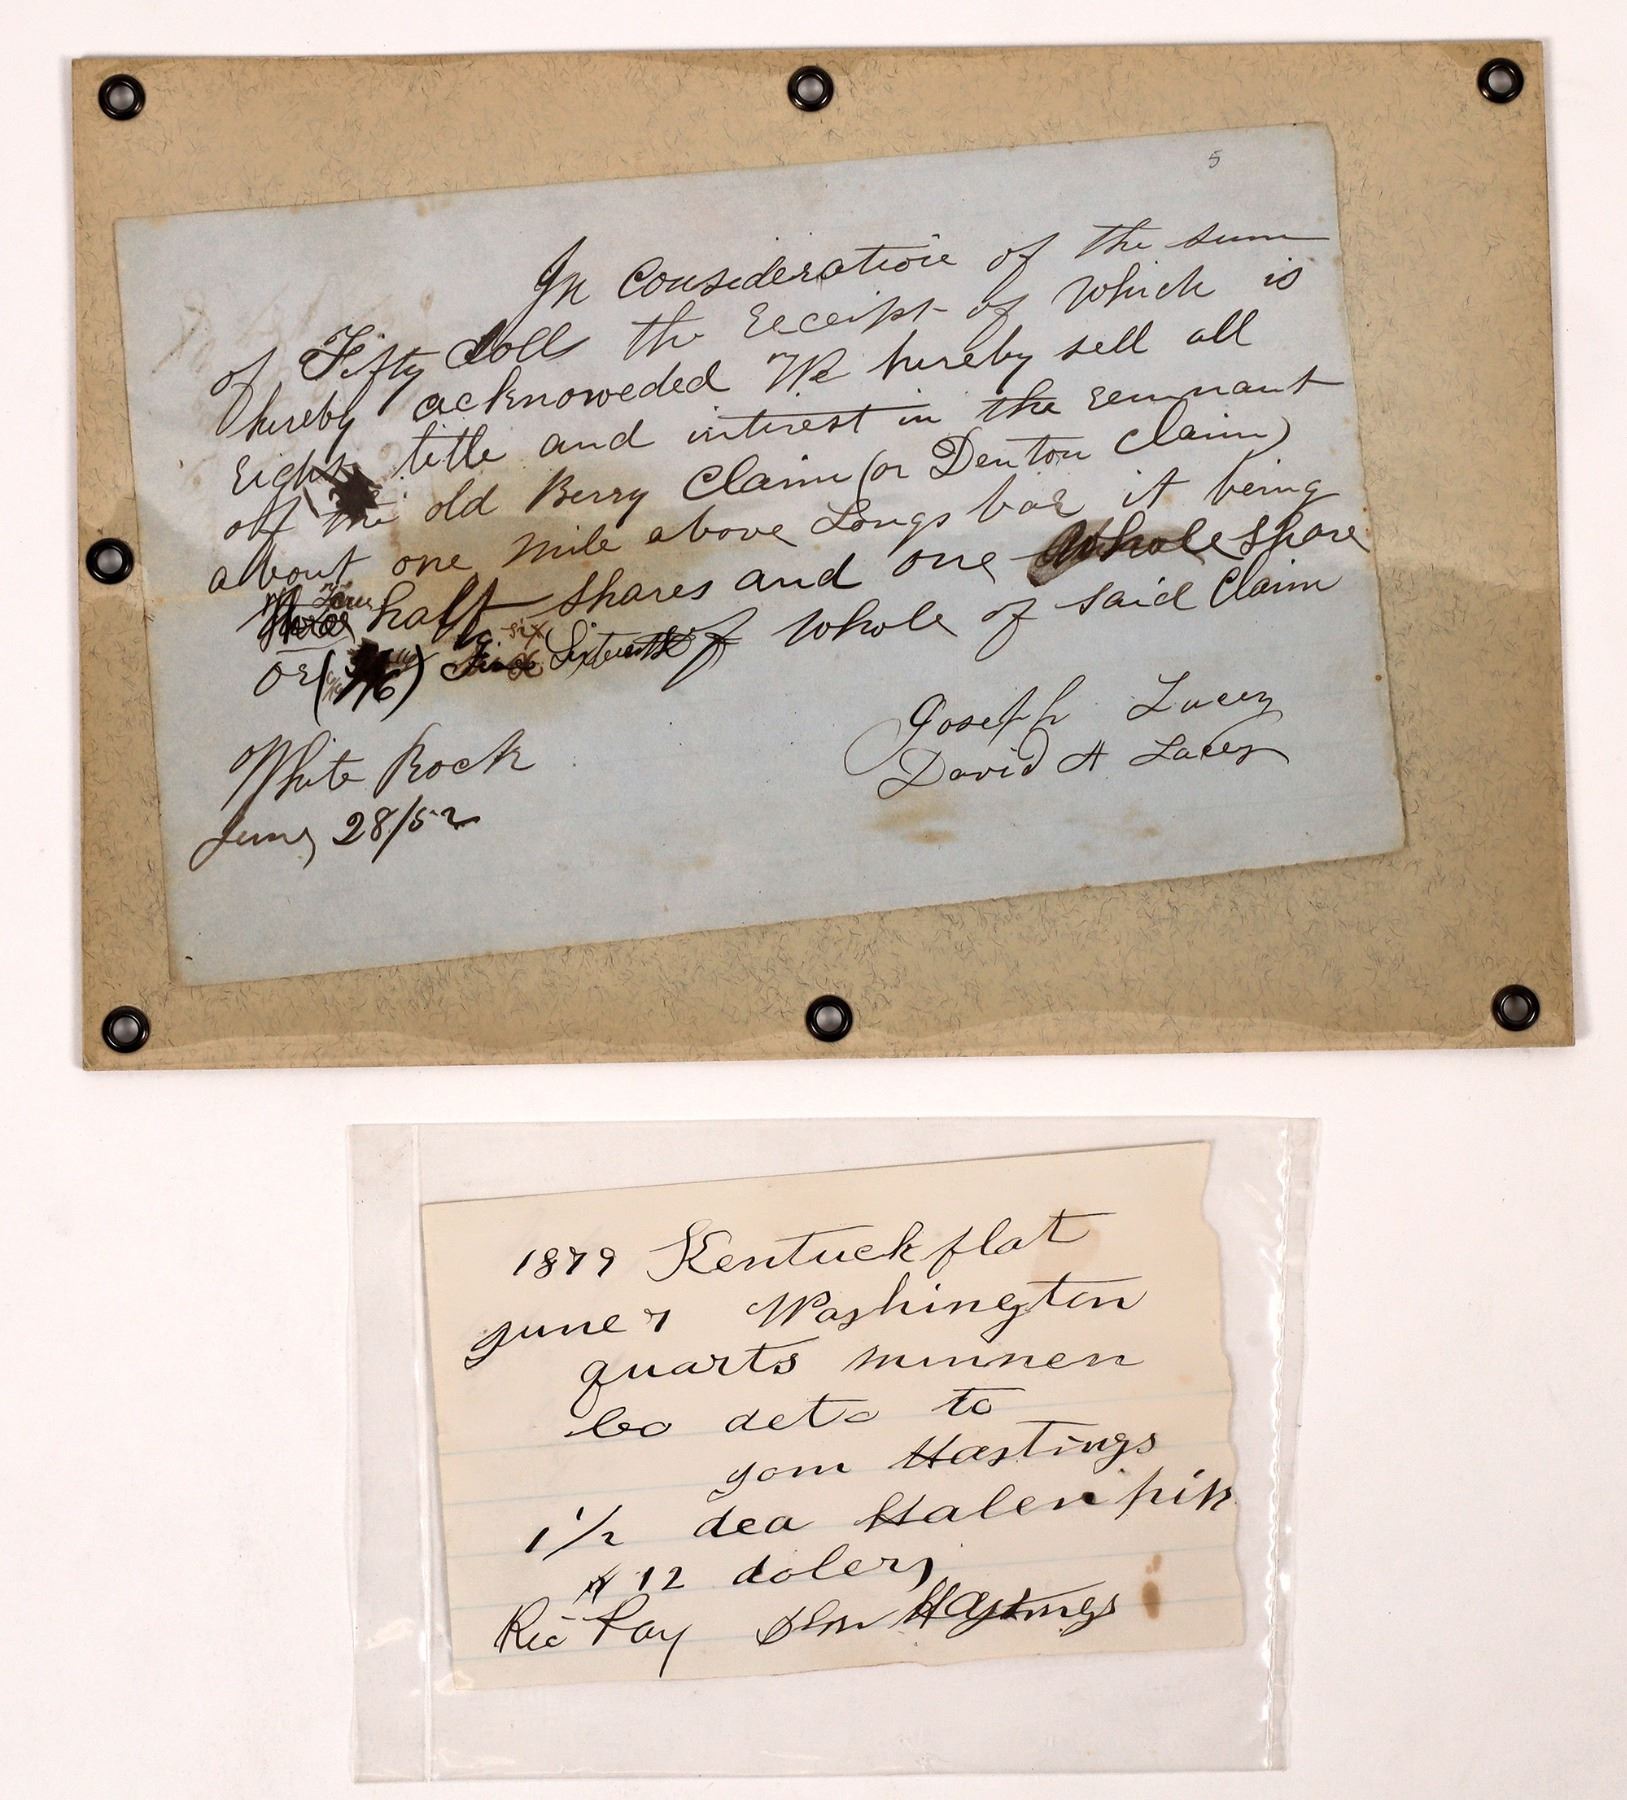 5
In Consideration of the sum
of Fifty dolls the receipt of which is
hereby acknoweded We hereby sell all
right title and interest in the remnant
off the old Berry Claim (or Denton Claim)
about one mile above Longs bar it being
half shares and one whole share
or ( ) six Sixteenths of whole of said Claim
Joseph Lacey
David A Lacey
White Rock
June 28/52
1879 Kentuck flat
June 7 Washington
quarts minnen
co deto to
gom Hastings
1 1/2 dea Halen pik
$12 dolers
Rec Pay Hastings